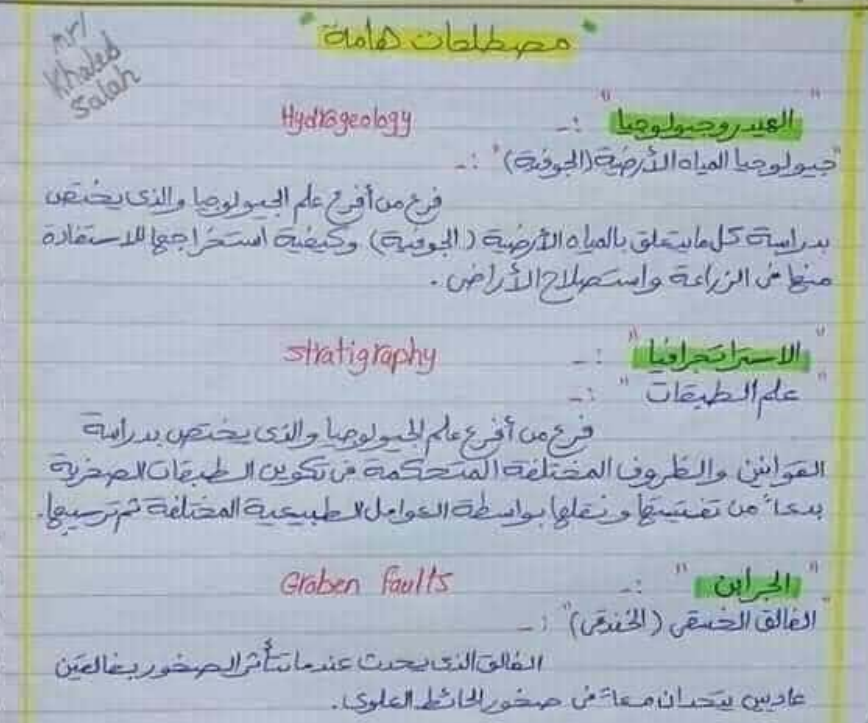 mr/
Khaled
Salah
مصطلحات هامة
"الهيدروجيولوجيا" :- Hydrogeology
"جيولوجيا المياه الأرضية (الجوفية)" :-
فرع من أفرع علم الجيولوجيا والذى يختص
بدراسة كل مايتعلق بالمياه الأرضية (الجوفية) وكيفية استخراجها للاستفادة
منها فى الزراعة واستصلاح الأراضى .
"الاستراتجرافيا" :- stratigraphy
"علم الطبقات" :-
فرع من أفرع علم الجيولوجيا والذى يختص بدراسة
القوانين والظروف المختلفة المتحكمة فى تكوين الطبقات الصخرية
بدءاً من تفتيتها ونقلها بواسطة العوامل الطبيعية المختلفة ثم ترسيبها.
"الجرابن" :- Graben faults
"الفالق الخسفى (الخندقى)" :-
الفالق الذى يحدث عندما تتأثر الصخور بفالقين
عاديين يتحدان معاً فى صخور الحائط العلوى.